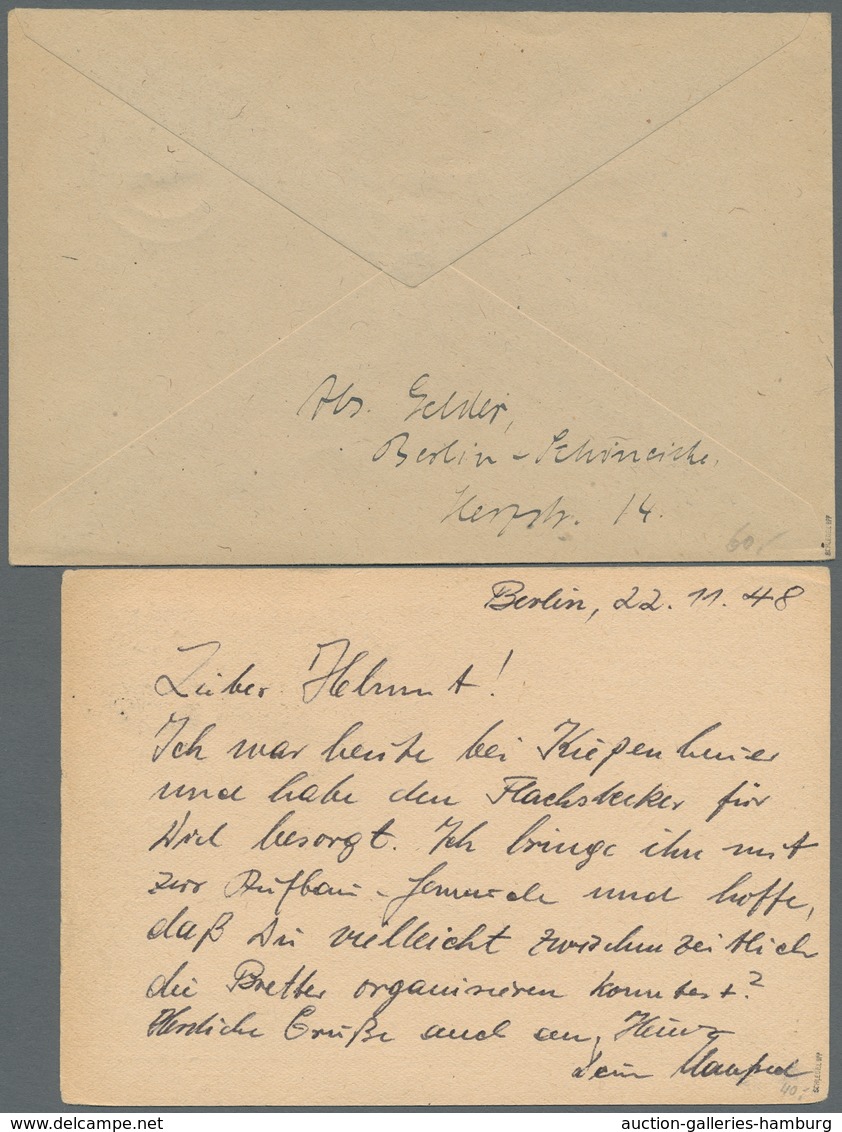 Abs. Gelder,
Berlin-Schöneiche.
Herzstr. 14.
60,-
Berlin, 22.11.48
Lieber Helmut!
Ich war heute bei Kiepenheuer
und habe den Flachstecker für
Dich besorgt. Ich bringe ihn mit
zur Aufbau-Gemeinde und hoffe,
daß Du vielleicht zwischenzeitlich
die Bretter organisieren konntest?
Herzliche Grüße auch an Heinz
Dein Manfred
40,-
auction-galleries-hamburg